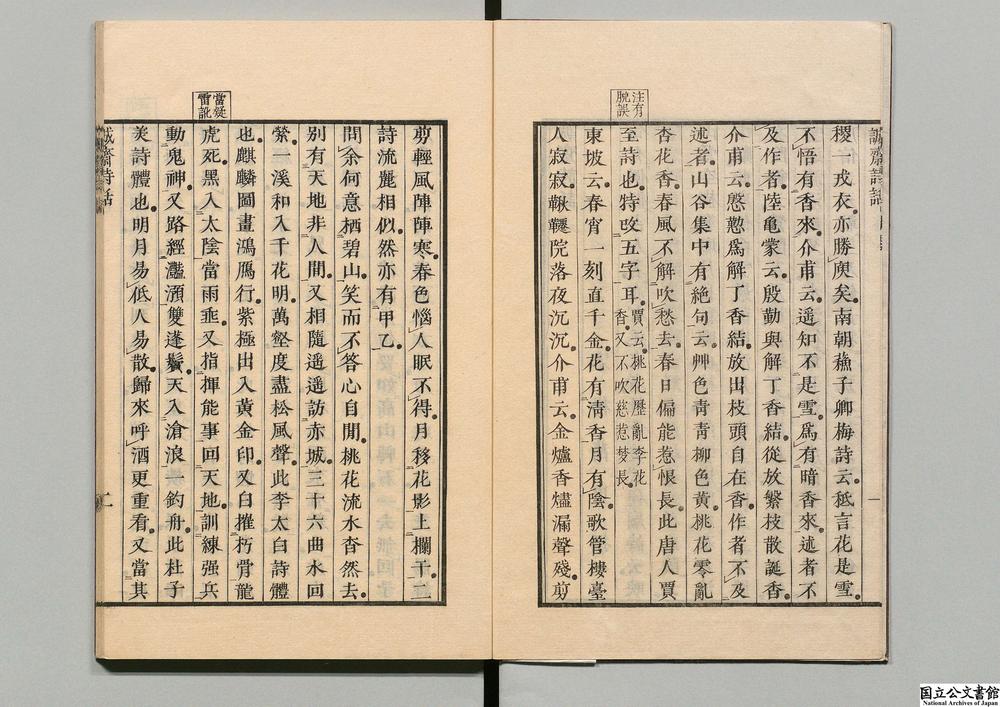 誠齋詩話
一
注有
脫誤
稷一戎衣亦勝庾矣南朝蘓子卿梅詩云秪言花是雪
不悟有香來介甫云遥知不是雪爲有暗香來述者不
及作者陸亀蒙云殷勤與解丁香結從放繁枝散誕香
介甫云慇懃爲解丁香結放出枝頭自在香作者不及
述者山谷集中有絶句云艸色青青柳色黃桃花零亂
杏花香春風不解吹愁去春日偏能惹恨長此唐人賈
至詩也特攺五字耳賈云桃花歷亂李花
香又不吹慈惹夢長
東坡云春宵一刻直千金花有淸香月有陰歌管樓臺
人寂寂鞦韆院落夜沉沉介甫云金爐香燼漏聲殘剪
剪輕風陣陣寒春色惱人眠不得月移花影上欄干二
詩流麗相似然亦有甲乙
問余何意栖碧山笑而不答心自閒桃花流水杳然去
別有天地非人間又相隨遥遥訪赤城三十六曲水回
縈一溪初入千花明萬壑度盡松風聲此李太白詩體
也麒麟圖畫鴻鴈行紫極出入黃金印又白摧朽骨龍
虎死黑入太陰當雨垂又指揮能事回天地訓練强兵
動鬼神又路經灩澦雙蓬鬢天入滄浪一釣舟此杜子
美詩體也明月易低人易散歸來呼酒更重看又當其
當疑
雷訛
誠齋詩話
二
国立公文書館
National Archives of Japan